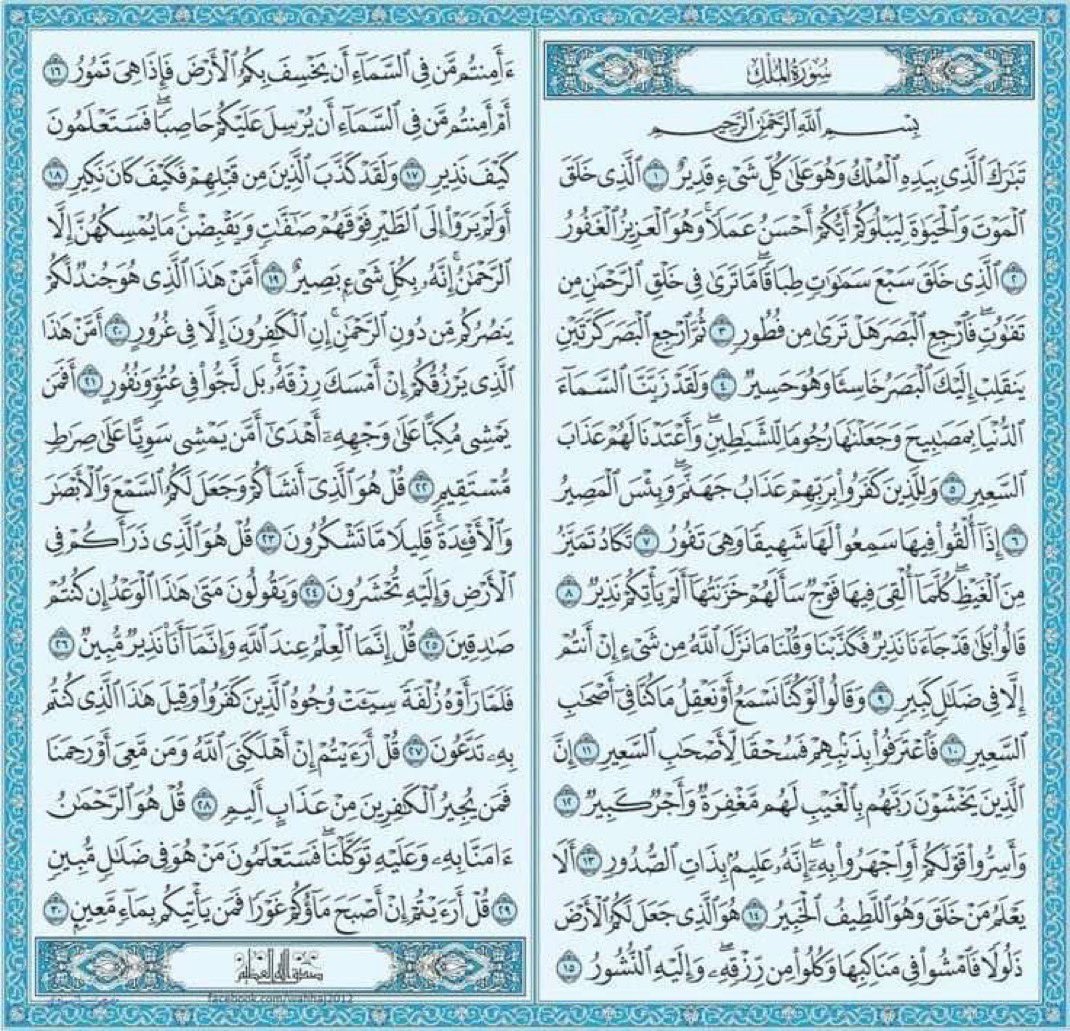 سُورَةُ الْمُلْكِ
بِسْمِ اللَّهِ الرَّحْمَٰنِ الرَّحِيمِ
تَبَٰرَكَ ٱلَّذِى بِيَدِهِ ٱلْمُلْكُ وَهُوَ عَلَىٰ كُلِّ شَىْءٍ قَدِيرٌ ١ ٱلَّذِى خَلَقَ
ٱلْمَوْتَ وَٱلْحَيَوٰةَ لِيَبْلُوَكُمْ أَيُّكُمْ أَحْسَنُ عَمَلًا ۚ وَهُوَ ٱلْعَزِيزُ ٱلْغَفُورُ
٢ ٱلَّذِى خَلَقَ سَبْعَ سَمَٰوَٰتٍ طِبَاقًا ۖ مَّا تَرَىٰ فِى خَلْقِ ٱلرَّحْمَٰنِ مِن
تَفَٰوُتٍ ۖ فَٱرْجِعِ ٱلْبَصَرَ هَلْ تَرَىٰ مِن فُطُورٍ ٣ ثُمَّ ٱرْجِعِ ٱلْبَصَرَ كَرَّتَيْنِ
يَنقَلِبْ إِلَيْكَ ٱلْبَصَرُ خَاسِئًا وَهُوَ حَسِيرٌ ٤ وَلَقَدْ زَيَّنَّا ٱلسَّمَآءَ
ٱلدُّنْيَا بِمَصَٰبِيحَ وَجَعَلْنَٰهَا رُجُومًا لِّلشَّيَٰطِينِ ۖ وَأَعْتَدْنَا لَهُمْ عَذَابَ
ٱلسَّعِيرِ ٥ وَلِلَّذِينَ كَفَرُوا۟ بِرَبِّهِمْ عَذَابُ جَهَنَّمَ ۖ وَبِئْسَ ٱلْمَصِيرُ
٦ إِذَآ أُلْقُوا۟ فِيهَا سَمِعُوا۟ لَهَا شَهِيقًا وَهِىَ تَفُورُ ٧ تَكَادُ تَمَيَّزُ
مِنَ ٱلْغَيْظِ ۖ كُلَّمَآ أُلْقِىَ فِيهَا فَوْجٌ سَأَلَهُمْ خَزَنَتُهَآ أَلَمْ يَأْتِكُمْ نَذِيرٌ ٨
قَالُوا۟ بَلَىٰ قَدْ جَآءَنَا نَذِيرٌ فَكَذَّبْنَا وَقُلْنَا مَا نَزَّلَ ٱللَّهُ مِن شَىْءٍ إِنْ أَنتُمْ
إِلَّا فِى ضَلَٰلٍ كَبِيرٍ ٩ وَقَالُوا۟ لَوْ كُنَّا نَسْمَعُ أَوْ نَعْقِلُ مَا كُنَّا فِىٓ أَصْحَٰبِ
ٱلسَّعِيرِ ١٠ فَٱعْتَرَفُوا۟ بِذَنۢبِهِمْ فَسُحْقًا لِّأَصْحَٰبِ ٱلسَّعِيرِ ١١ إِنَّ
ٱلَّذِينَ يَخْشَوْنَ رَبَّهُم بِٱلْغَيْبِ لَهُم مَّغْفِرَةٌ وَأَجْرٌ كَبِيرٌ ١٢
وَأَسِرُّوا۟ قَوْلَكُمْ أَوِ ٱجْهَرُوا۟ بِهِۦٓ ۖ إِنَّهُۥ عَلِيمٌۢ بِذَاتِ ٱلصُّدُورِ ١٣ أَلَا
يَعْلَمُ مَنْ خَلَقَ وَهُوَ ٱللَّطِيفُ ٱلْخَبِيرُ ١٤ هُوَ ٱلَّذِى جَعَلَ لَكُمُ ٱلْأَرْضَ
ذَلُولًا فَٱمْشُوا۟ فِى مَنَاكِبِهَا وَكُلُوا۟ مِن رِّزْقِهِۦ ۖ وَإِلَيْهِ ٱلنُّشُورُ ١٥
ءَأَمِنتُم مَّن فِى ٱلسَّمَآءِ أَن يَخْسِفَ بِكُمُ ٱلْأَرْضَ فَإِذَا هِىَ تَمُورُ ١٦
أَمْ أَمِنتُم مَّن فِى ٱلسَّمَآءِ أَن يُرْسِلَ عَلَيْكُمْ حَاصِبًا ۖ فَسَتَعْلَمُونَ
كَيْفَ نَذِيرِ ١٧ وَلَقَدْ كَذَّبَ ٱلَّذِينَ مِن قَبْلِهِمْ فَكَيْفَ كَانَ نَكِيرِ ١٨
أَوَلَمْ يَرَوْا۟ إِلَى ٱلطَّيْرِ فَوْقَهُمْ صَٰٓفَّٰتٍ وَيَقْبِضْنَ ۚ مَا يُمْسِكُهُنَّ إِلَّا
ٱلرَّحْمَٰنُ ۚ إِنَّهُۥ بِكُلِّ شَىْءٍۭ بَصِيرٌ ١٩ أَمَّنْ هَٰذَا ٱلَّذِى هُوَ جُندٌ لَّكُمْ
يَنصُرُكُم مِّن دُونِ ٱلرَّحْمَٰنِ ۚ إِنِ ٱلْكَٰفِرُونَ إِلَّا فِى غُرُورٍ ٢٠ أَمَّنْ هَٰذَا
ٱلَّذِى يَرْزُقُكُمْ إِنْ أَمْسَكَ رِزْقَهُۥ ۚ بَل لَّجُّوا۟ فِى عُتُوٍّ وَنُفُورٍ ٢١ أَفَمَن
يَمْشِى مُكِبًّا عَلَىٰ وَجْهِهِۦٓ أَهْدَىٰٓ أَمَّن يَمْشِى سَوِيًّا عَلَىٰ صِرَٰطٍ
مُّسْتَقِيمٍ ٢٢ قُلْ هُوَ ٱلَّذِىٓ أَنشَأَكُمْ وَجَعَلَ لَكُمُ ٱلسَّمْعَ وَٱلْأَبْصَٰرَ
وَٱلْأَفْـِٔدَةَ ۖ قَلِيلًا مَّا تَشْكُرُونَ ٢٣ قُلْ هُوَ ٱلَّذِى ذَرَأَكُمْ فِى
ٱلْأَرْضِ وَإِلَيْهِ تُحْشَرُونَ ٢٤ وَيَقُولُونَ مَتَىٰ هَٰذَا ٱلْوَعْدُ إِن كُنتُمْ
صَٰدِقِينَ ٢٥ قُلْ إِنَّمَا ٱلْعِلْمُ عِندَ ٱللَّهِ وَإِنَّمَآ أَنَا۠ نَذِيرٌ مُّبِينٌ ٢٦
فَلَمَّا رَأَوْهُ زُلْفَةً سِيٓـَٔتْ وُجُوهُ ٱلَّذِينَ كَفَرُوا۟ وَقِيلَ هَٰذَا ٱلَّذِى كُنتُم
بِهِۦ تَدَّعُونَ ٢٧ قُلْ أَرَءَيْتُمْ إِنْ أَهْلَكَنِىَ ٱللَّهُ وَمَن مَّعِىَ أَوْ رَحِمَنَا
فَمَن يُجِيرُ ٱلْكَٰفِرِينَ مِنْ عَذَابٍ أَلِيمٍ ٢٨ قُلْ هُوَ ٱلرَّحْمَٰنُ
ءَامَنَّا بِهِۦ وَعَلَيْهِ تَوَكَّلْنَا ۖ فَسَتَعْلَمُونَ مَنْ هُوَ فِى ضَلَٰلٍ مُّبِينٍ
٢٩ قُلْ أَرَءَيْتُمْ إِنْ أَصْبَحَ مَآؤُكُمْ غَوْرًا فَمَن يَأْتِيكُم بِمَآءٍ مَّعِينٍۭ ٣٠
صدق الله العظيم